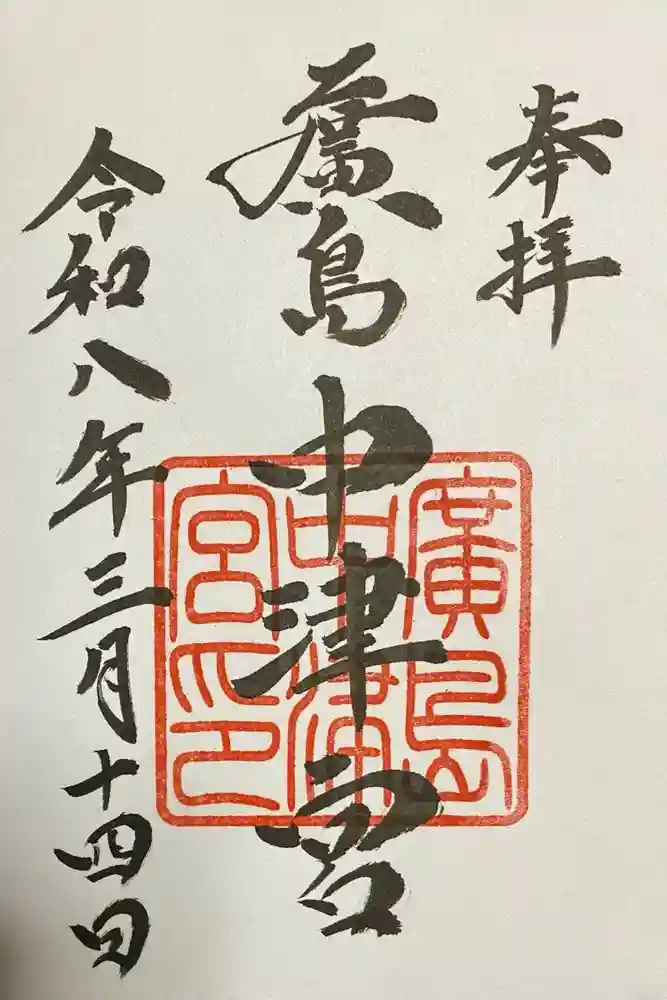 奉拝
廣島中津宮
廣島
中津
宮印
令和八年三月十四日